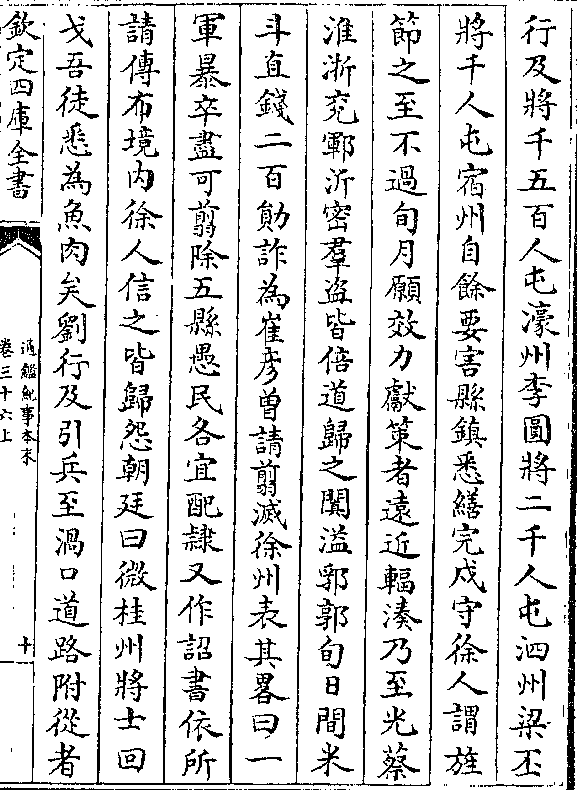 行及將千五百人屯濠州李圓將二千人屯泗州梁丕
將千人屯宿州自餘要害縣鎮悉繕完戍守徐人謂旌
節之至不過旬月願效力獻策者遠近輻湊乃至光蔡
淮浙兖鄆沂密羣盗皆倍道歸之闐溢郛郭旬日間米
斗直錢二百勛詐為崔彦曽請翦滅徐州表其畧曰一
軍暴卒盡可翦除五縣愚民各宜配隸又作詔書依所
請傳布境内徐人信之皆歸怨朝廷曰微桂州將士回
戈吾徒悉為魚肉矣劉行及引兵至渦口道路附從者
欽定四庫全書
通鑑紀事本末
卷三十六上
十